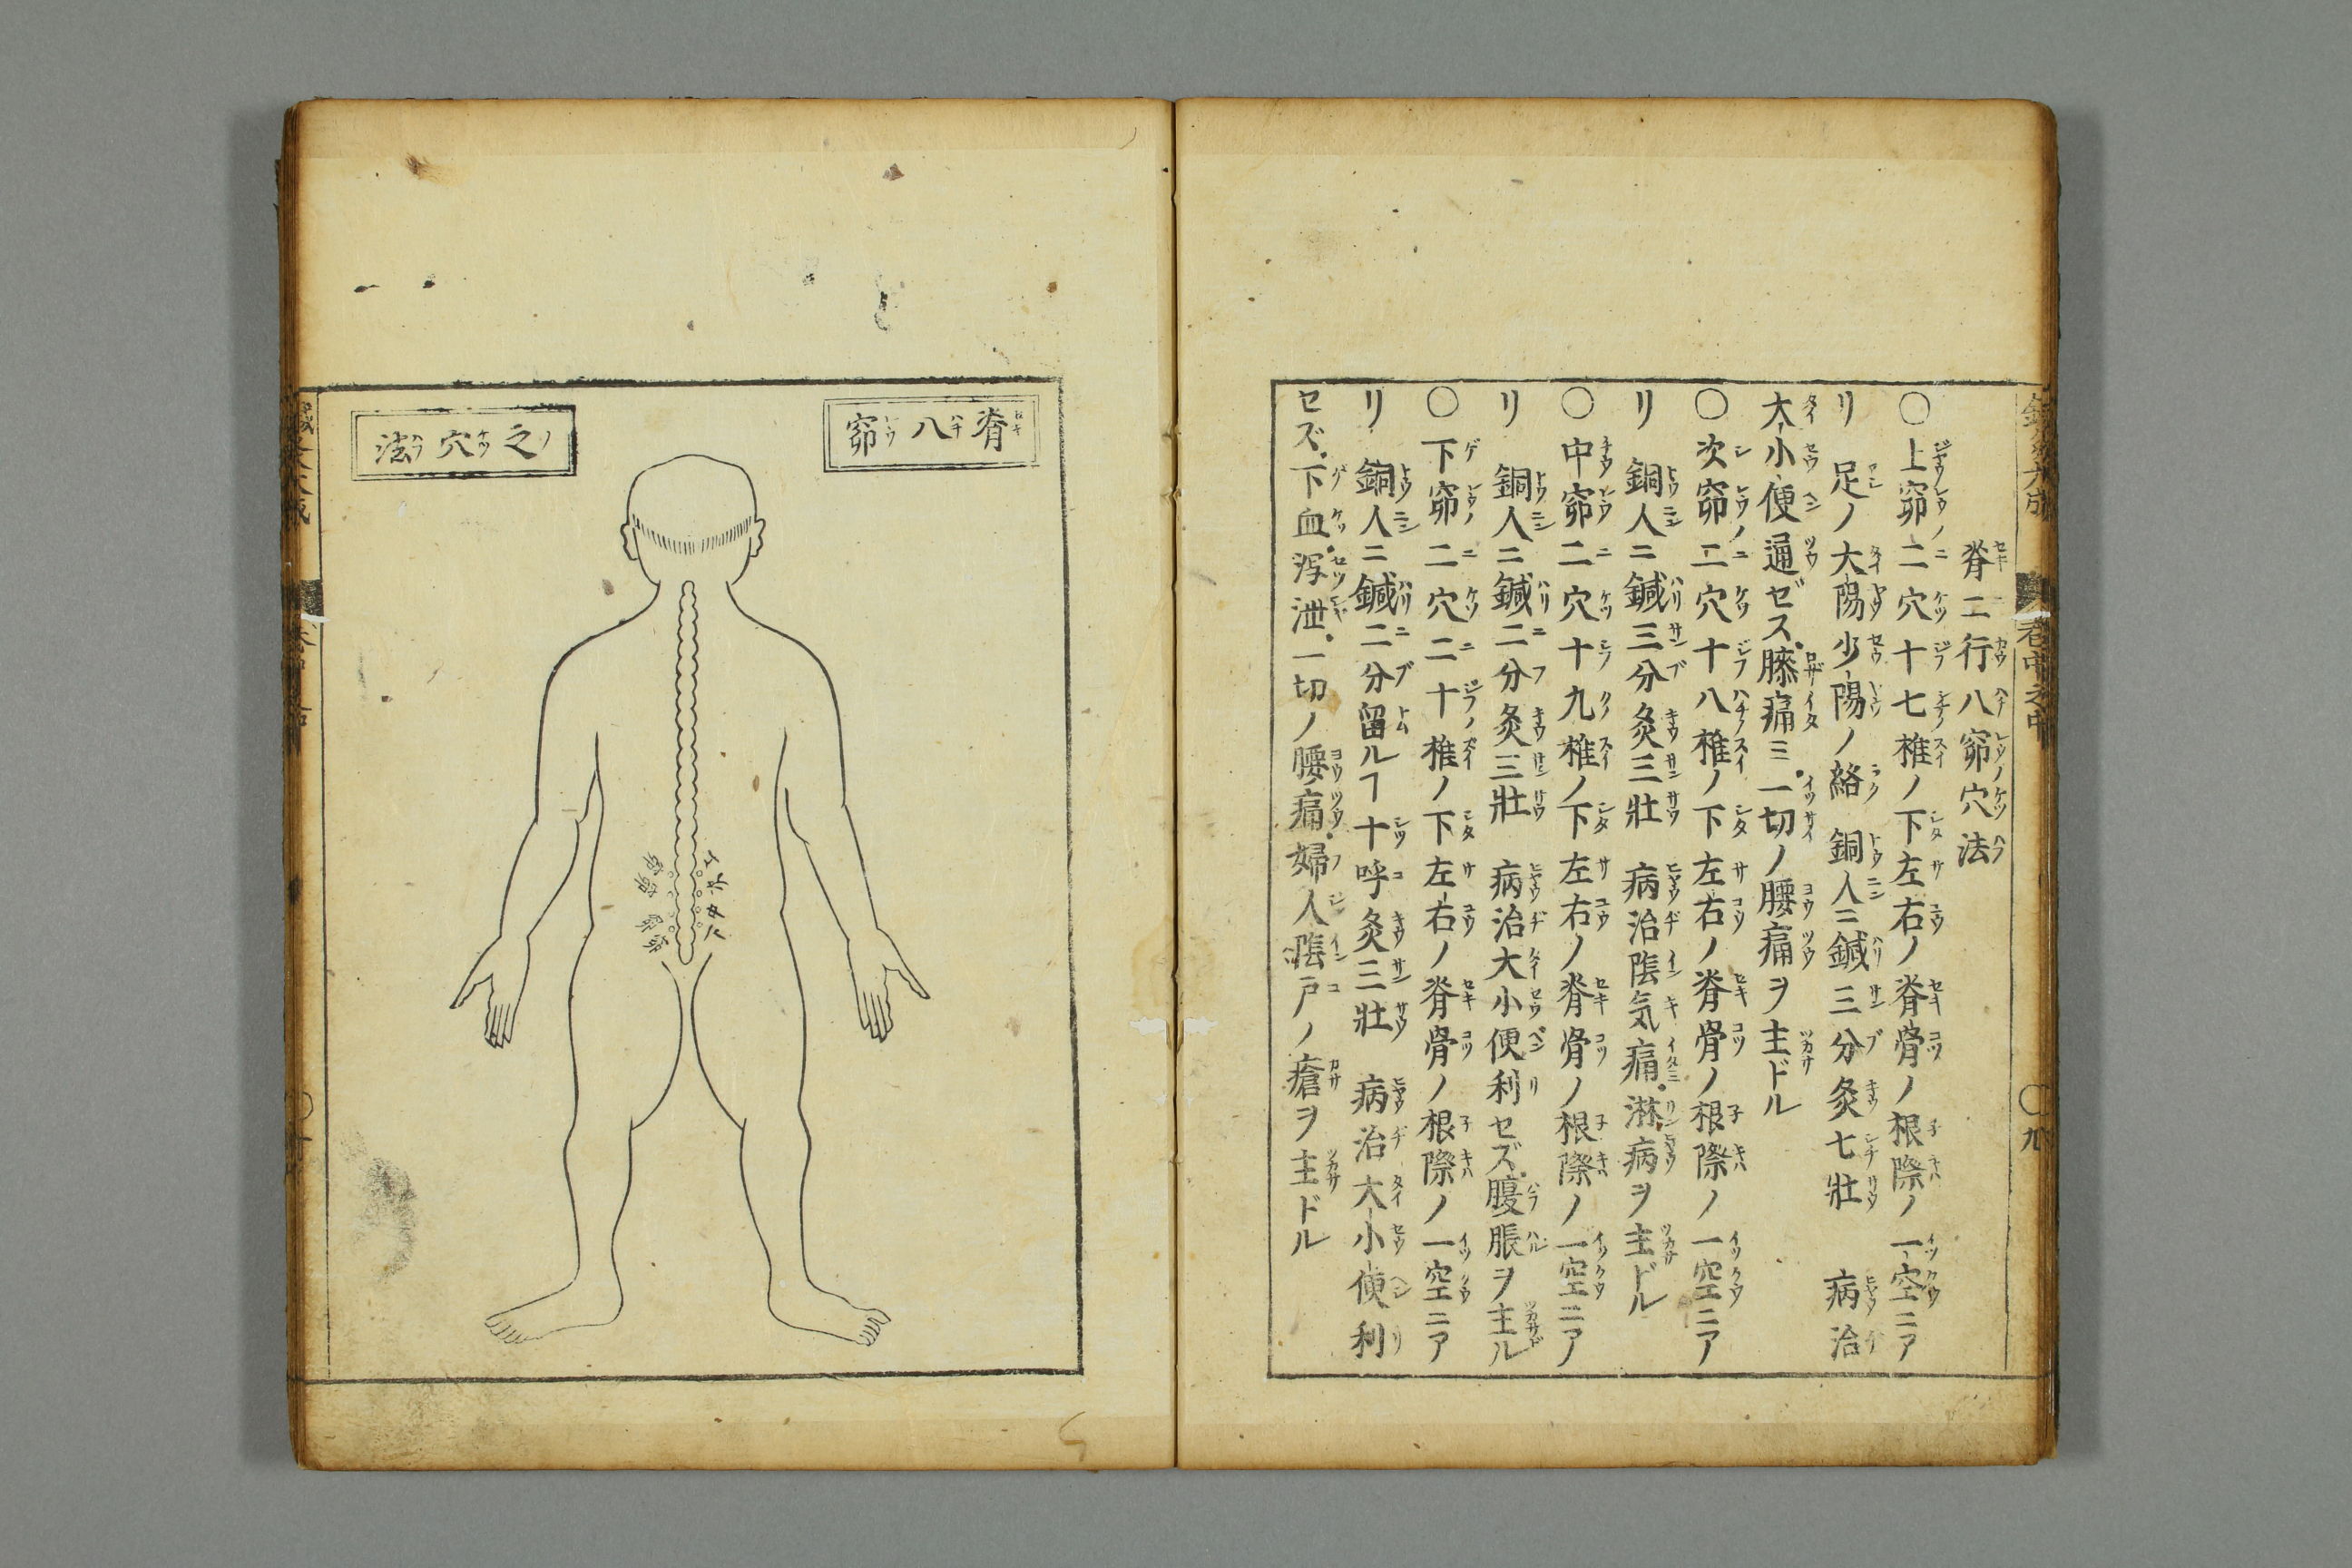 脊二行八窌穴法
〇上窌二穴十七椎ノ下左右ノ脊骨ノ根際ノ一空ニア
リ 足ノ大陽少陽ノ絡 銅人ニ鍼三分灸七壯 病治
大小便通ゼス膝痛ミ一切ノ腰痛ヲ主ドル
〇次窌二穴十八椎ノ下左右ノ脊骨ノ根際ノ一空ニア
リ 銅人ニ鍼三分灸三壯 病治陰気痛淋病ヲ主ドル
〇中窌二穴十九椎ノ下左右ノ脊骨ノ根際ノ一空ニア
リ 銅人ニ鍼二分灸三壯 病治大小便利セズ腹脹ヲ主ル
〇下窌二穴二十椎ノ下左右ノ脊骨ノ根際ノ一空ニア
リ 銅人ニ鍼二分留ルヿ十呼灸三壯 病治大小便利
セズ下血泻泄一切ノ腰痛婦人陰戸ノ瘡ヲ主ドル
巻中之中
〇九
脊八窌
之穴法